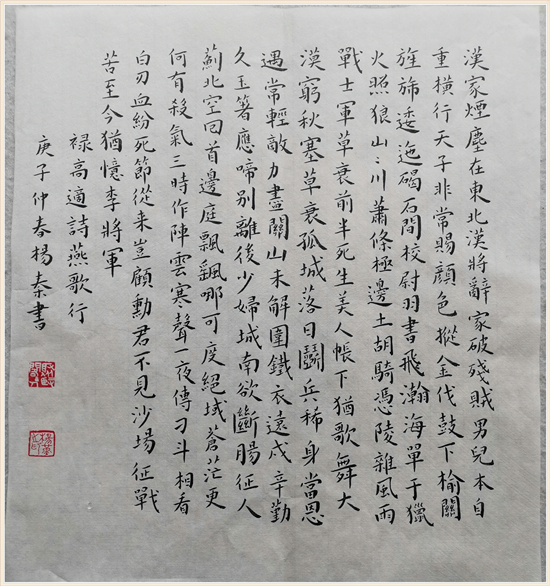 漢家煙塵在東北漢將辭家破殘賊男兒本自
重橫行天子非常賜顏色摐金伐鼓下榆關
旌旆逶迤碣石間校尉羽書飛瀚海單于獵
火照狼山〻川蕭條極邊土胡騎憑陵雜風雨
戰士軍草衰前半死生美人帳下猶歌舞大
漠窮秋塞草衰孤城落日鬭兵稀身當恩
遇常輕敵力盡關山未解圍鐵衣遠戍辛勤
久玉箸應啼別離後少婦城南欲斷腸征人
薊北空回首邊庭飄颻哪可度絕域蒼茫更
何有殺氣三時作陣雲寒聲一夜傳刁斗相看
白刃血紛死節從来豈顧勳君不見沙場征戰
苦至今猶憶李將軍
禄高適詩燕歌行
庚子仲春楊秦書